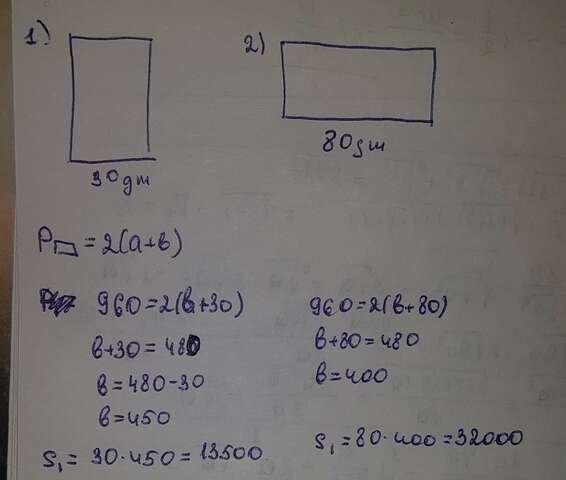 1)
2)
30 gm
80 gm
P▭ = 2(a+b)
960 = 2(b+30)
b+30 = 480
b = 480-30
b = 450
S₁ = 30·450 = 13500
960 = 2(b+80)
b+80 = 480
b = 400
S₁ = 80·400 = 32000